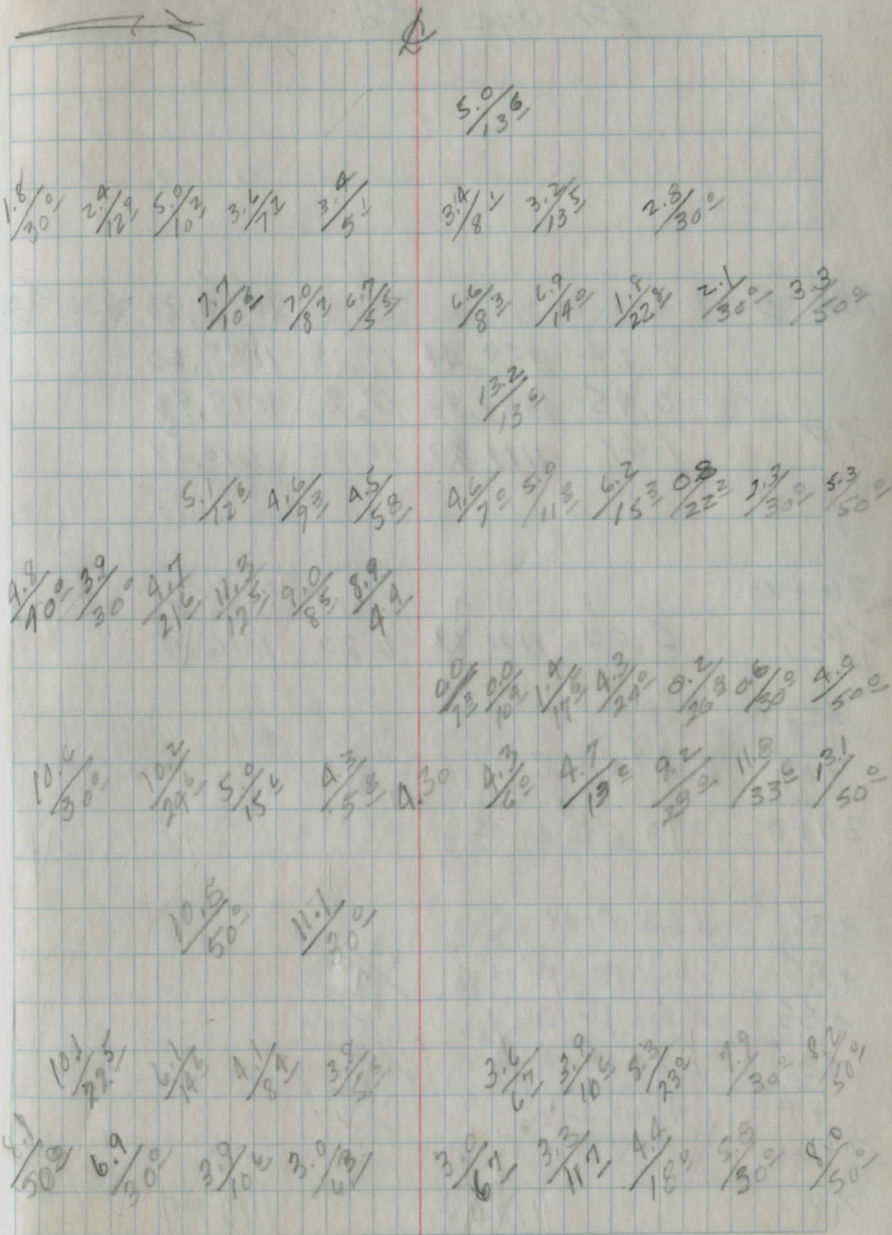 ℄
5.0/13⁶
1.8/30⁰ 2.4/12⁹ 5.0/10² 3.6/7² 3.4/5¹ 3.4/8¹ 3.2/13⁵ 2.8/30⁰
7.7/10⁶ 7.0/8² 6.7/5⁵ 6.6/8³ 6.9/14⁰ 1.8/22⁸ 2.1/30⁰ 3.3/50⁰
13.2/13⁶
5.1/12⁵ 4.6/9³ 4.5/5⁸ 4.6/7⁰ 5.0/11⁸ 6.2/15³ 0.8/22² 2.3/30⁰ 5.3/50⁰
4.8/40⁰ 3.9/30⁰ 4.7/21⁶ 11.3/12⁵ 9.0/8⁵ 8.9/4⁴
0.0/7³ 0.0/10⁴ 1.4/17⁰ 4.3/24⁰ 0.2/26³ 0.6/30⁰ 4.9/50⁰
10.6/30⁰ 10.2/24⁰ 5.0/15⁶ 4.3/5⁸ 4.3⁰ 4.3/6⁰ 4.7/13² 9.2/23⁰ 11.8/33⁶ 13.1/50⁰
10.5/50⁰ 11.1/30⁰
10.1/22⁵ 6.1/14⁵ 4.1/8⁴ 3.8/5⁶ 3.6/6⁷ 3.9/10⁶ 5.3/23⁰ 7.9/30⁰ 8.2/50⁰
8.1/50⁰ 6.9/30⁰ 3.9/10⁶ 3.0/6³ 3.0/6⁷ 3.3/11⁷ 4.4/18⁰ 5.8/30⁰ 8.0/50⁰